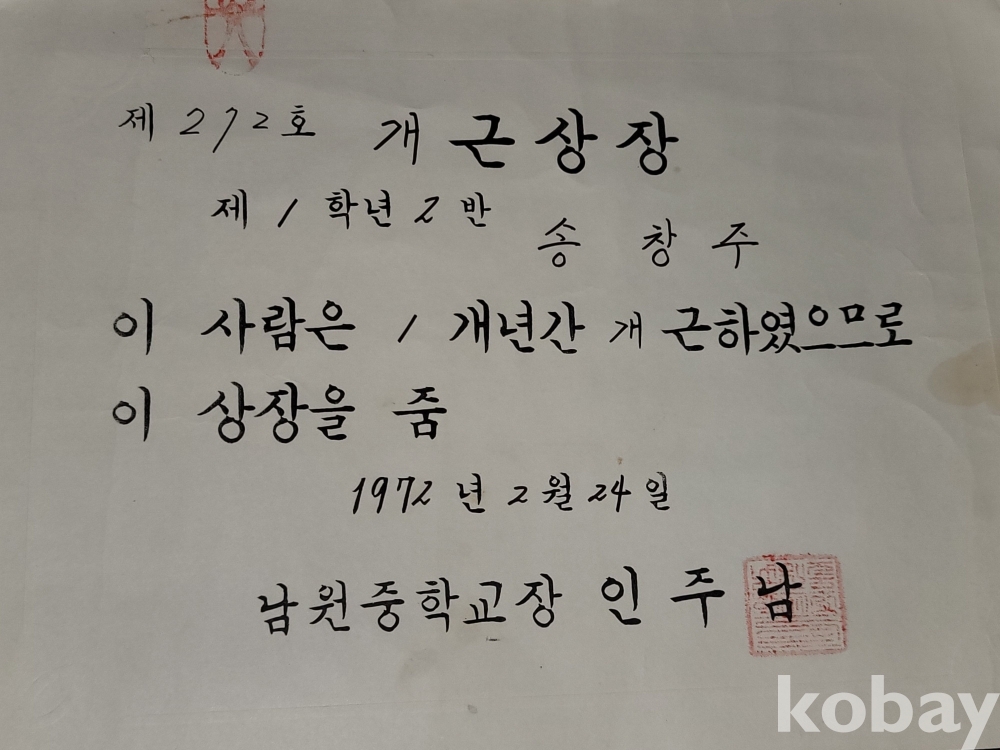 제 272호 개근상장
제 1 학년 2 반
송 창 주
이 사람은 1 개년간 개근하였으므로
이 상장을 줌
1972 년 2 월 24 일
남원중학교장 인 주 남
kobay